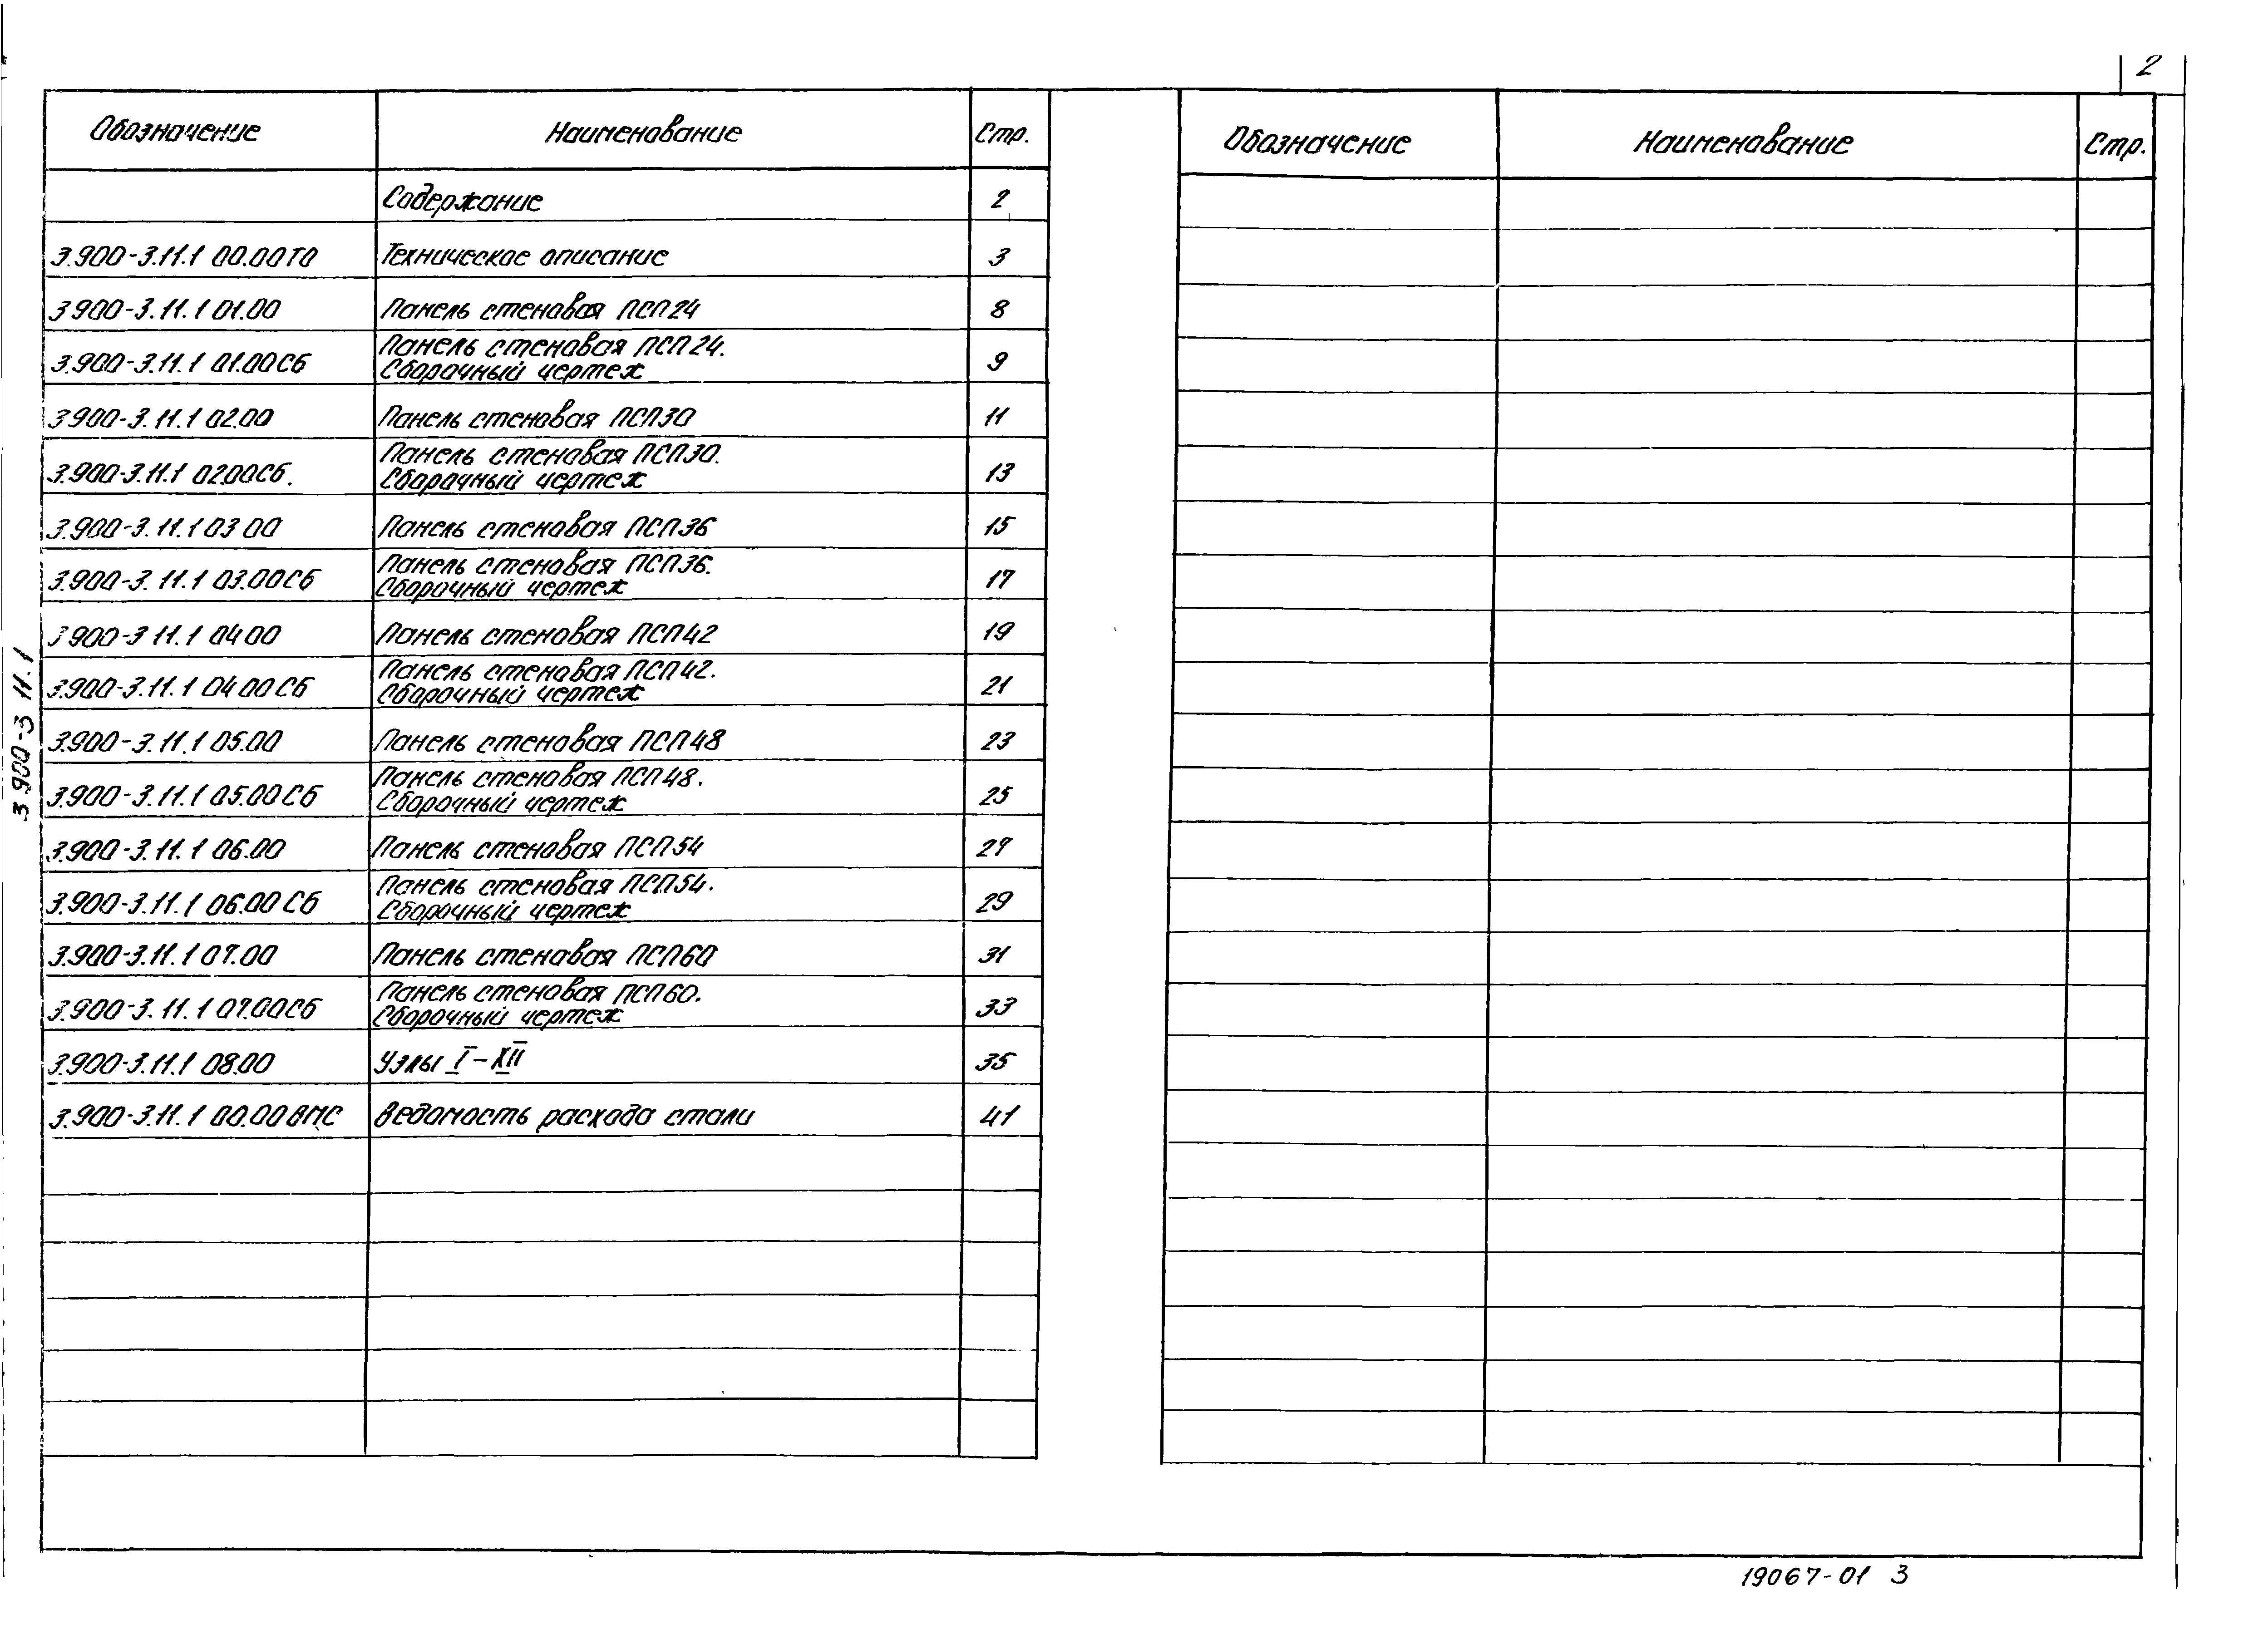 2
Обозначение Наименование Стр.
Содержание 2
3.900-3.11.1 00.00ТО Техническое описание 3
3.900-3.11.1 01.00 Панель стеновая ПСП24 8
3.900-3.11.1 01.00Сб Панель стеновая ПСП24.
Сборочный чертеж 9
3.900-3.11.1 02.00 Панель стеновая ПСП30 11
3.900-3.11.1 02.00Сб. Панель стеновая ПСП30.
Сборочный чертеж 13
3.900-3.11.1 03 00 Панель стеновая ПСП36 15
3.900-3.11.1 03.00Сб Панель стеновая ПСП36.
Сборочный чертеж 17
3 900-3 11.1 04 00 Панель стеновая ПСП42 19
3.900-3.11.1 04 00 Сб Панель стеновая ПСП42.
Сборочный чертеж 21
3.900-3.11.1 05.00 Панель стеновая ПСП48 23
3.900-3.11.1 05.00 Сб Панель стеновая ПСП48.
Сборочный чертеж 25
3.900-3.11.1 06.00 Панель стеновая ПСП54 27
3.900-3.11.1 06.00 Сб Панель стеновая ПСП54.
Сборочный чертеж 29
3.900-3.11.1 07.00 Панель стеновая ПСП60 31
3.900-3.11.1 07.00Сб Панель стеновая ПСП60.
Сборочный чертеж 33
3.900-3.11.1 08.00 Узлы I-XII 35
3.900-3.11.1 00.00ВМС Ведомость расхода стали 41
3 900-3 11.1
Обозначение Наименование Стр.
19067-01 3